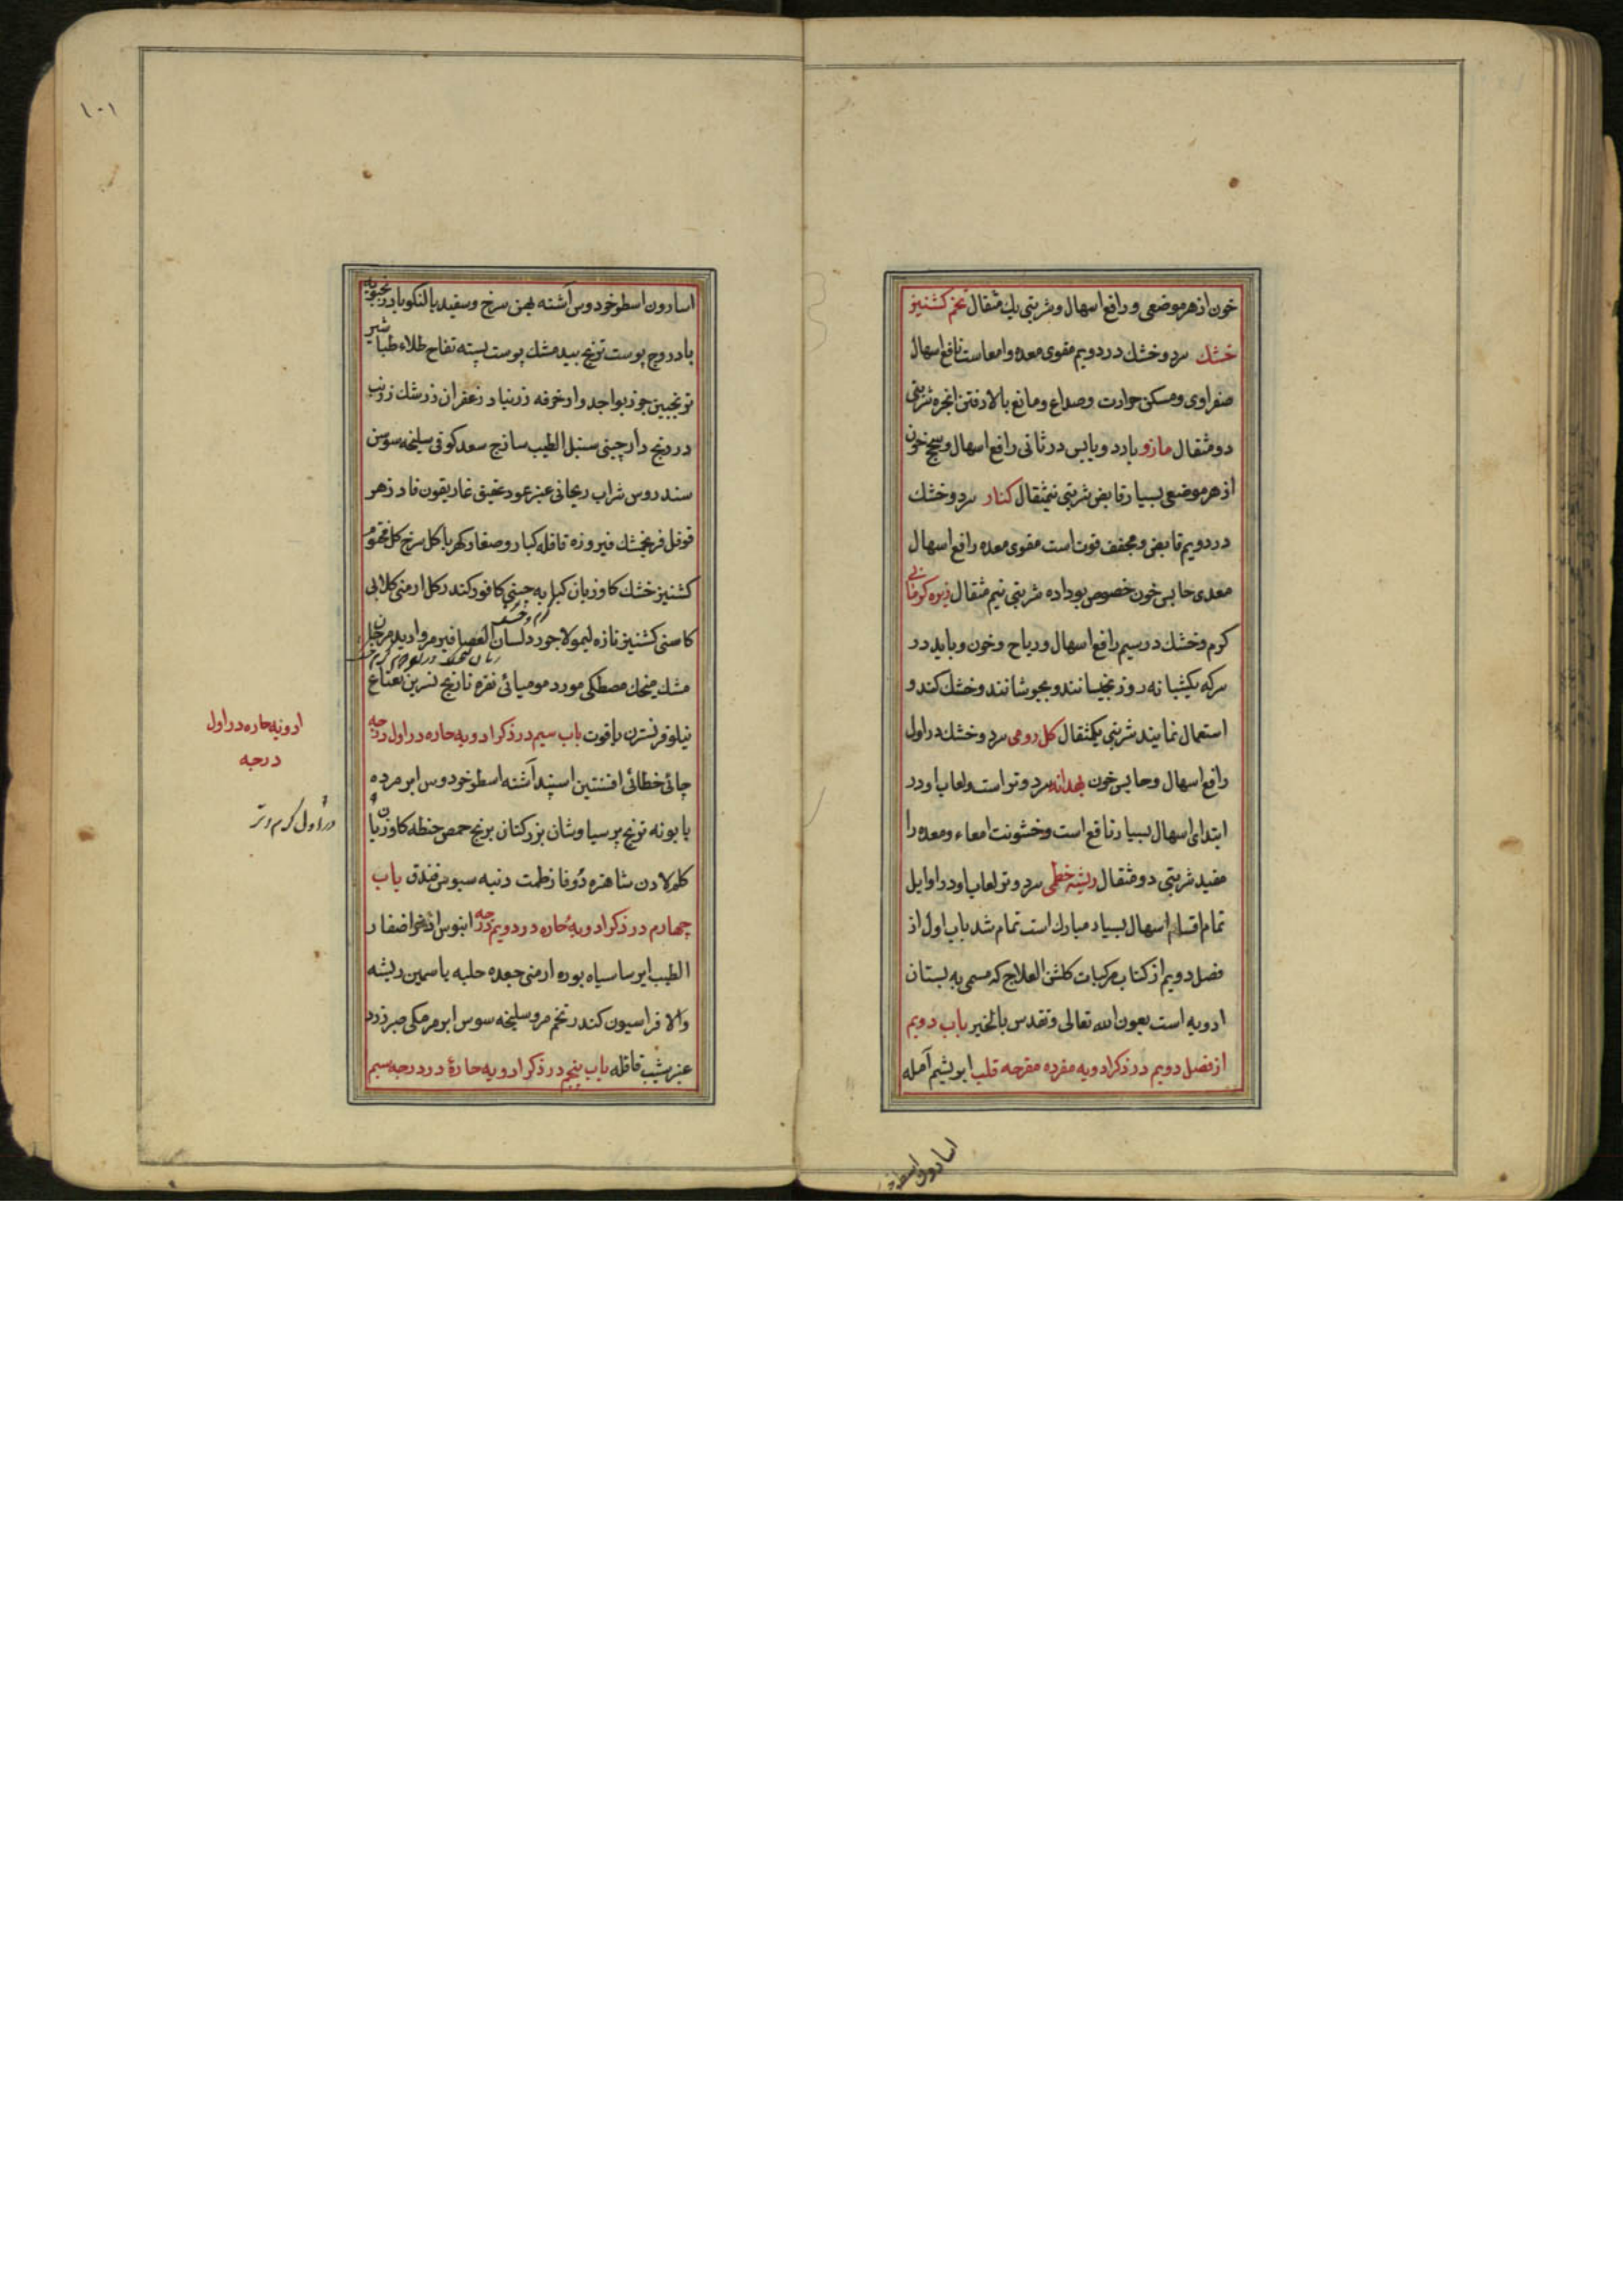 خون از هر موضعی و رافع اسهال و شربتی یك مثقال تخم کشنیز
خشك سرد و خشك در دویم مقوی معده و امعاست نافع اسهال
صفراوی و مسکن حرارت و صداع و مانع بالا رفتن ابخره شربتی
دو مثقال مازو بارد و یابس در ثانی رافع اسهال و سحج خون
از هر موضعی بسیار قابض شربتی نیمثقال کنار سرد و خشك
در دویم قابض و مجفف قوت است مقوی معده رافع اسهال
معدی حابس خون خصوص بوداده شربتی نیم مثقال زیره کرمانی
کرم و خشك در سیم رافع اسهال و ریاح و خون و باید در
سرکه یکشبانه روز بخیسانند و بجوشانند و خشك کنند و
استعمال نمایند شربتی یکمثقال کل رومی سرد و خشك در اول
رافع اسهال و حابس خون بهدانه سرد و تر است و لعاب او در
ابتدای اسهال بسیار نافع است و خشونت امعاء و معده را
مفید شربتی دو مثقال ریشه خطمی سرد و تر لعاب او در اوایل
تمام اقسام اسهال بسیار مبارك است تمام شد باب اول از
فصل دویم از کتاب مرکبات کلشن العلاج که مسمی به بستان
ادویه است بعون الله تعالی و تقدس بالخیر باب دویم
از فصل دویم در ذکر ادویه مفرده مفرحه قلب ابریشم آمله
اسارون
۱۰۱
اسارون اسطوخودوس آشنه بهمن سرخ و سفید بالنکو بادرنجبویه
بادروج پوست ترنج بید مشك پوست پسته تفاح طلاء طباشیر
ترنجبین جوزبوا جدوار خرفه زرنباد زعفران زرشك زرنب
درونج دارچینی سنبل الطیب ساذج سعد کوفی سلیخه سوسن
سندروس شراب ریحانی عنبر عود عقیق غاریقون فادزهر
فوفل فرنجمشك فیروزه قاقله کبار و صغار کهربا کل سرخ کل مختوم
کشنیز خشك کاوزبان کبابه چینی کافور کندر کل ارمنی کلابی
کرم و خشك
کاسنی کشنیز تازه لیمو لاجورد لسان العصافیر مروارید مرجان
مشك میخك مصطکی مورد مومیائی نقره نارنج نسرین نعناع
نیلوفر نسترن یاقوت باب سیم در ذکر ادویه حاره در اول درجه
چائی خطائی افسنتین اسپند آشنه اسطوخودوس ابر مرده
بابونه ترنج پرسیاوشان بزرکتان برنج حمص حنطه کاوزبان
کلم لادن شاهتره زوفا زطمت دنبه سبوس فندق باب
چهارم در ذکر ادویه حاره در دویم درجه ابنوس اذخر اضفار
الطیب ایرسا سیاه بوره ارمنی جعده حلبه یاسمین ریشه
والا فراسیون کندر تخم مرو سلیخه سوس ابر مرمکی صبر زرد
عنبر شب قاقله باب پنجم در ذکر ادویه حارهٔ در درجه سیم
ادویه حاره در اول
درجه
در اول کرم و تر